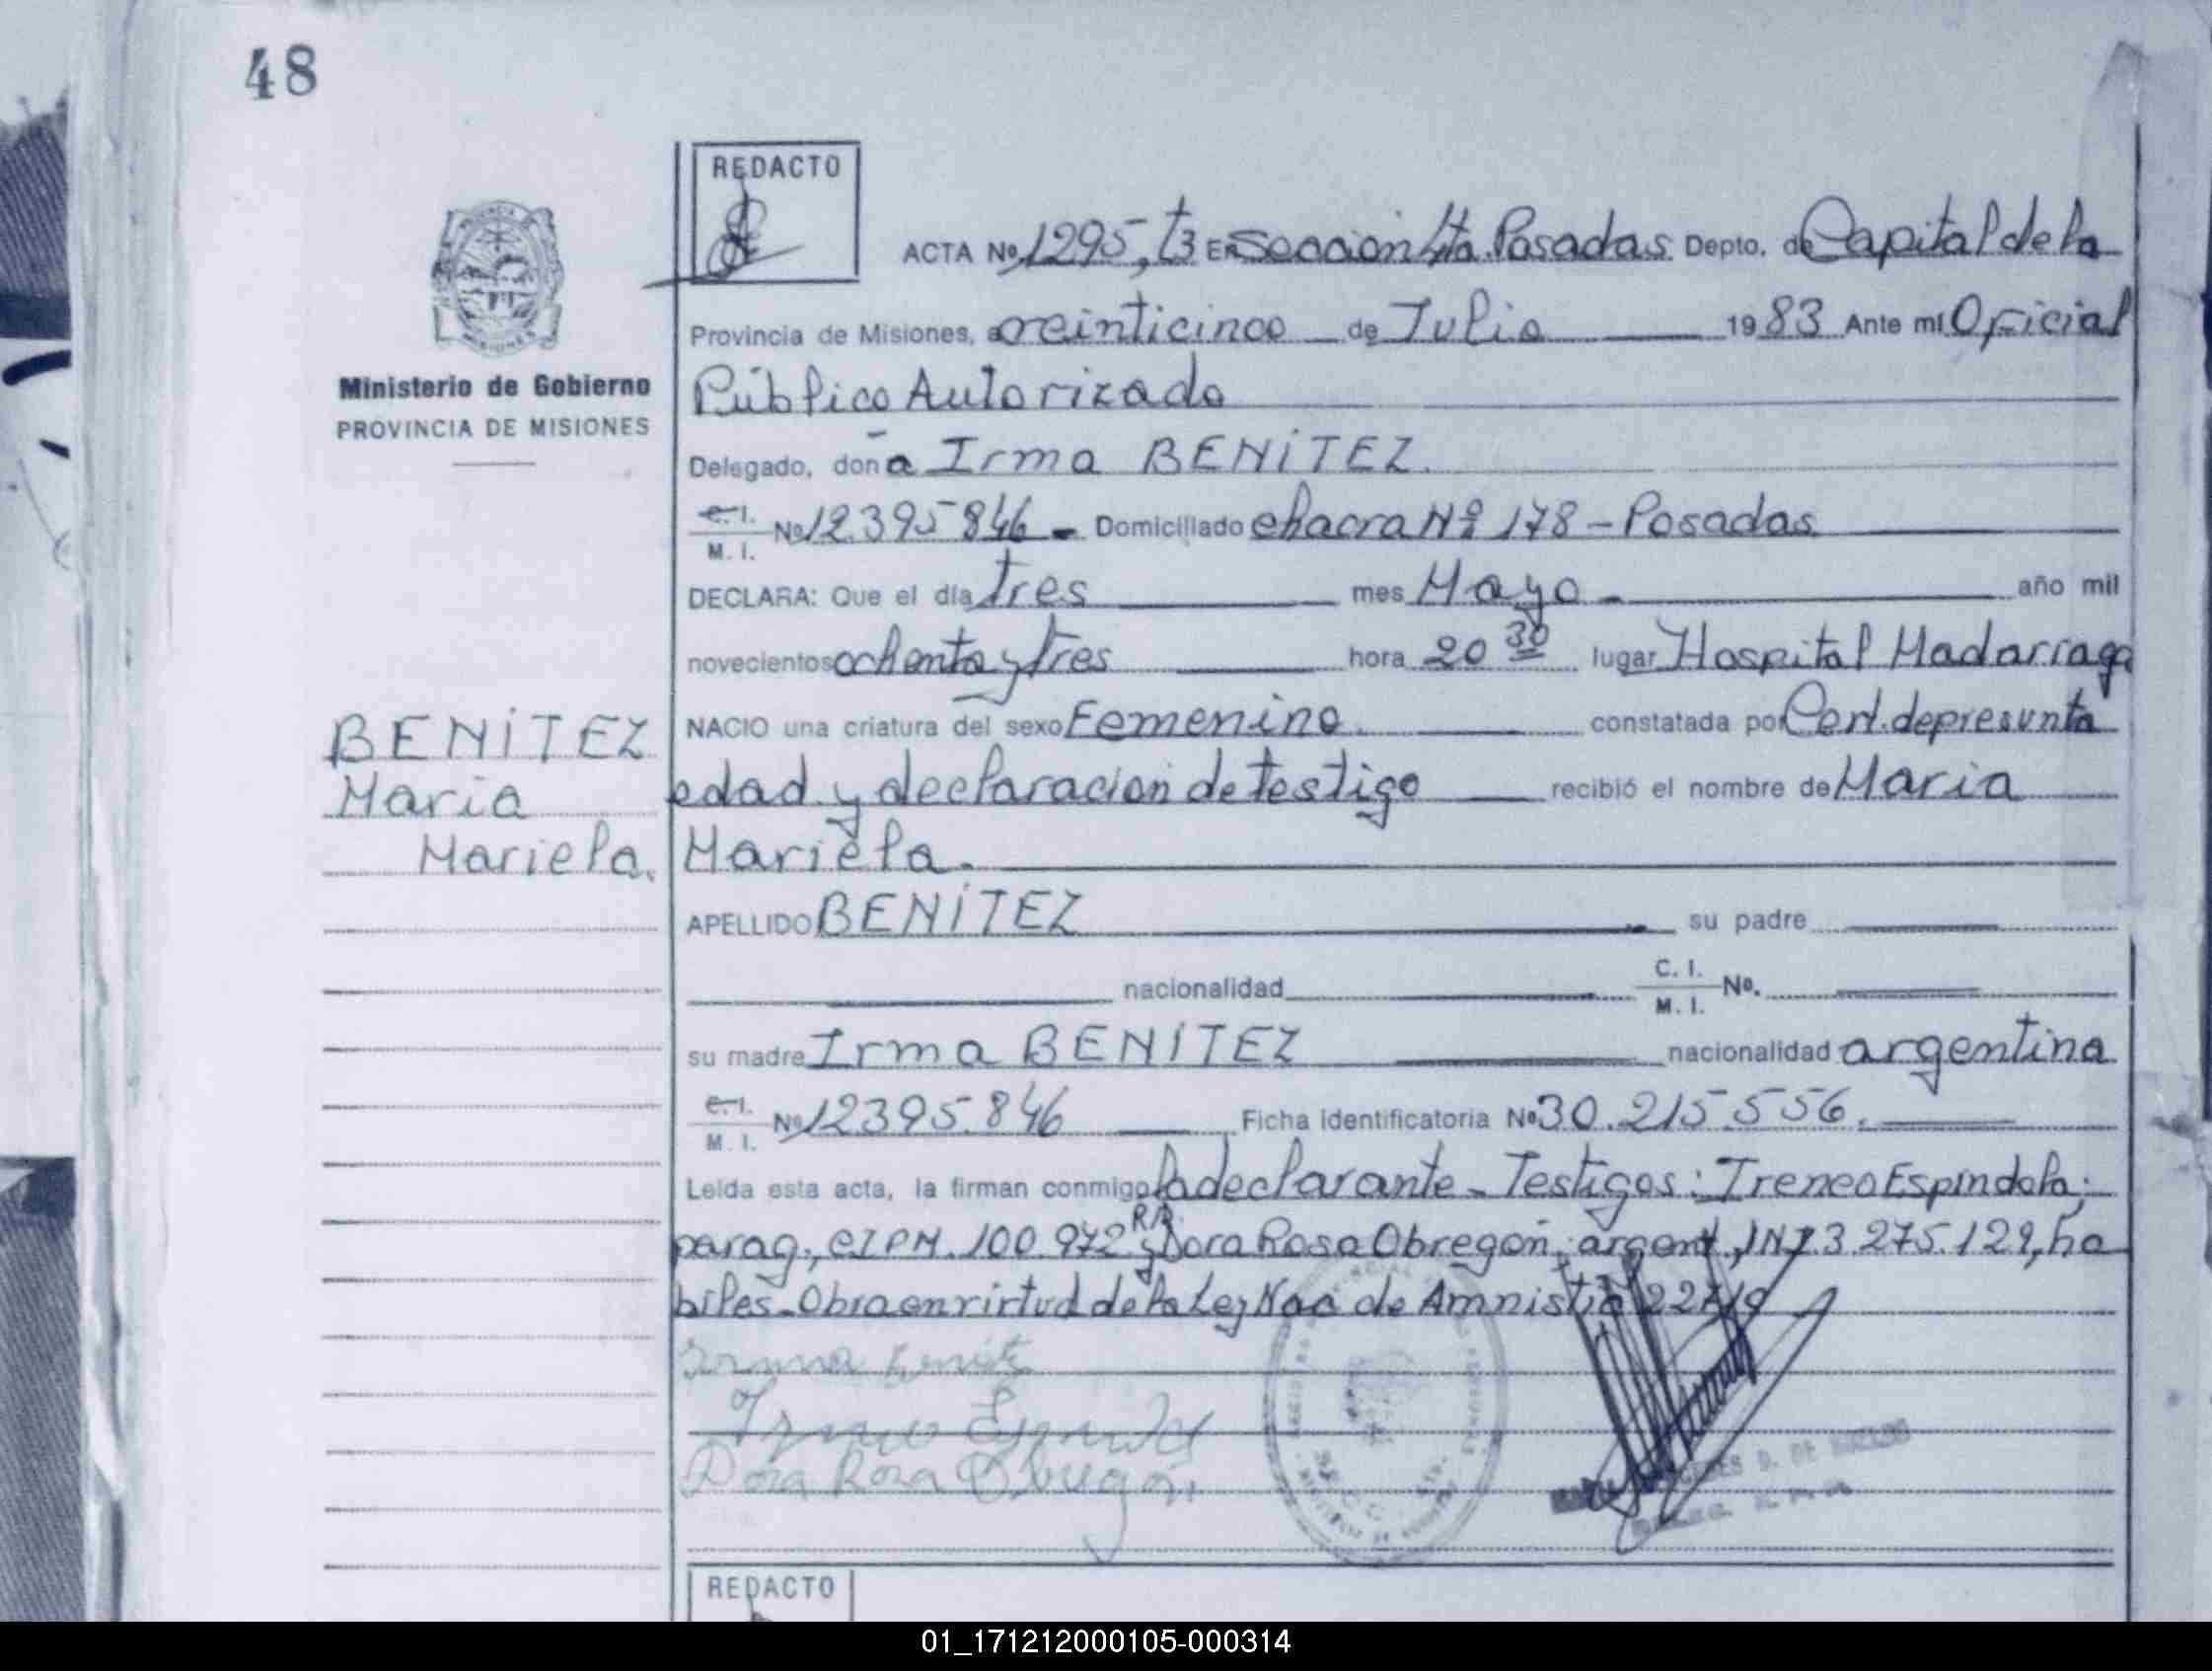 48
REDACTO
ACTA Nº 1295, t3 En Sección 4ta. Posadas Depto. de Capital de la
Provincia de Misiones, a veinticinco de Julio 1983 Ante mí Oficial
Ministerio de Gobierno
PROVINCIA DE MISIONES
Público Autorizado
Delegado, doña Irma BENÍTEZ.
C.I. M.I. Nº 12.395.846 - Domiciliado chacra Nº 178 - Posadas
DECLARA: Que el día tres mes Mayo año mil
novecientos ochenta y tres hora 20 30 lugar Hospital Madarraga
NACIO una criatura del sexo Femenino constatada por Cert. de presunta
BENÍTEZ
María
Mariela.
edad y declaración de testigo recibió el nombre de María
Mariela.
APELLIDO BENÍTEZ su padre
nacionalidad C. I. M. I. Nº.
su madre Irma BENÍTEZ nacionalidad argentina
C.I. M.I. Nº 12395.846 Ficha identificatoria Nº 30.215.556.
Leída esta acta, la firman conmigo la declarante - Testigos: Ireneo Espíndola;
parag., CIPM. 100.972 y Dora Rosa Obregón, argent, 3.275.129, há
biles - Obra en virtud de la Ley Nac de Amnistía
Irma Benitez
Dora Rosa Obregón
REDACTO
01_171212000105-000314